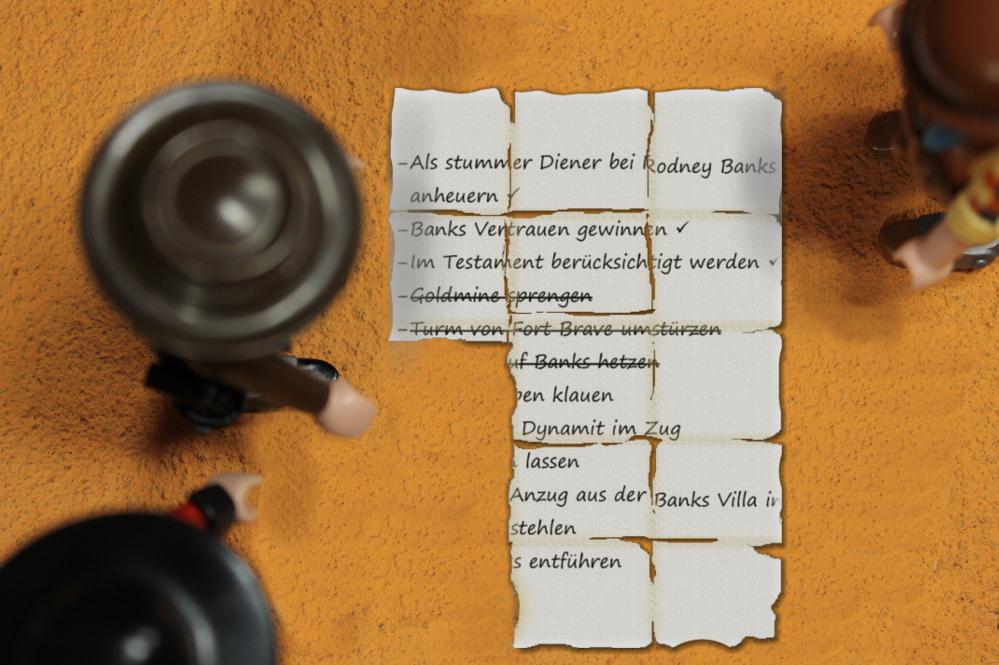 -Als stummer Diener bei Rodney Banks
anheuern ✓
-Banks Vertrauen gewinnen ✓
-Im Testament berücksichtigt werden ✓
-Goldmine sprengen
-Turm von Fort Brave umstürzen
uf Banks hetzen
ben klauen
Dynamit im Zug
lassen
Anzug aus der Banks Villa in
stehlen
s entführen